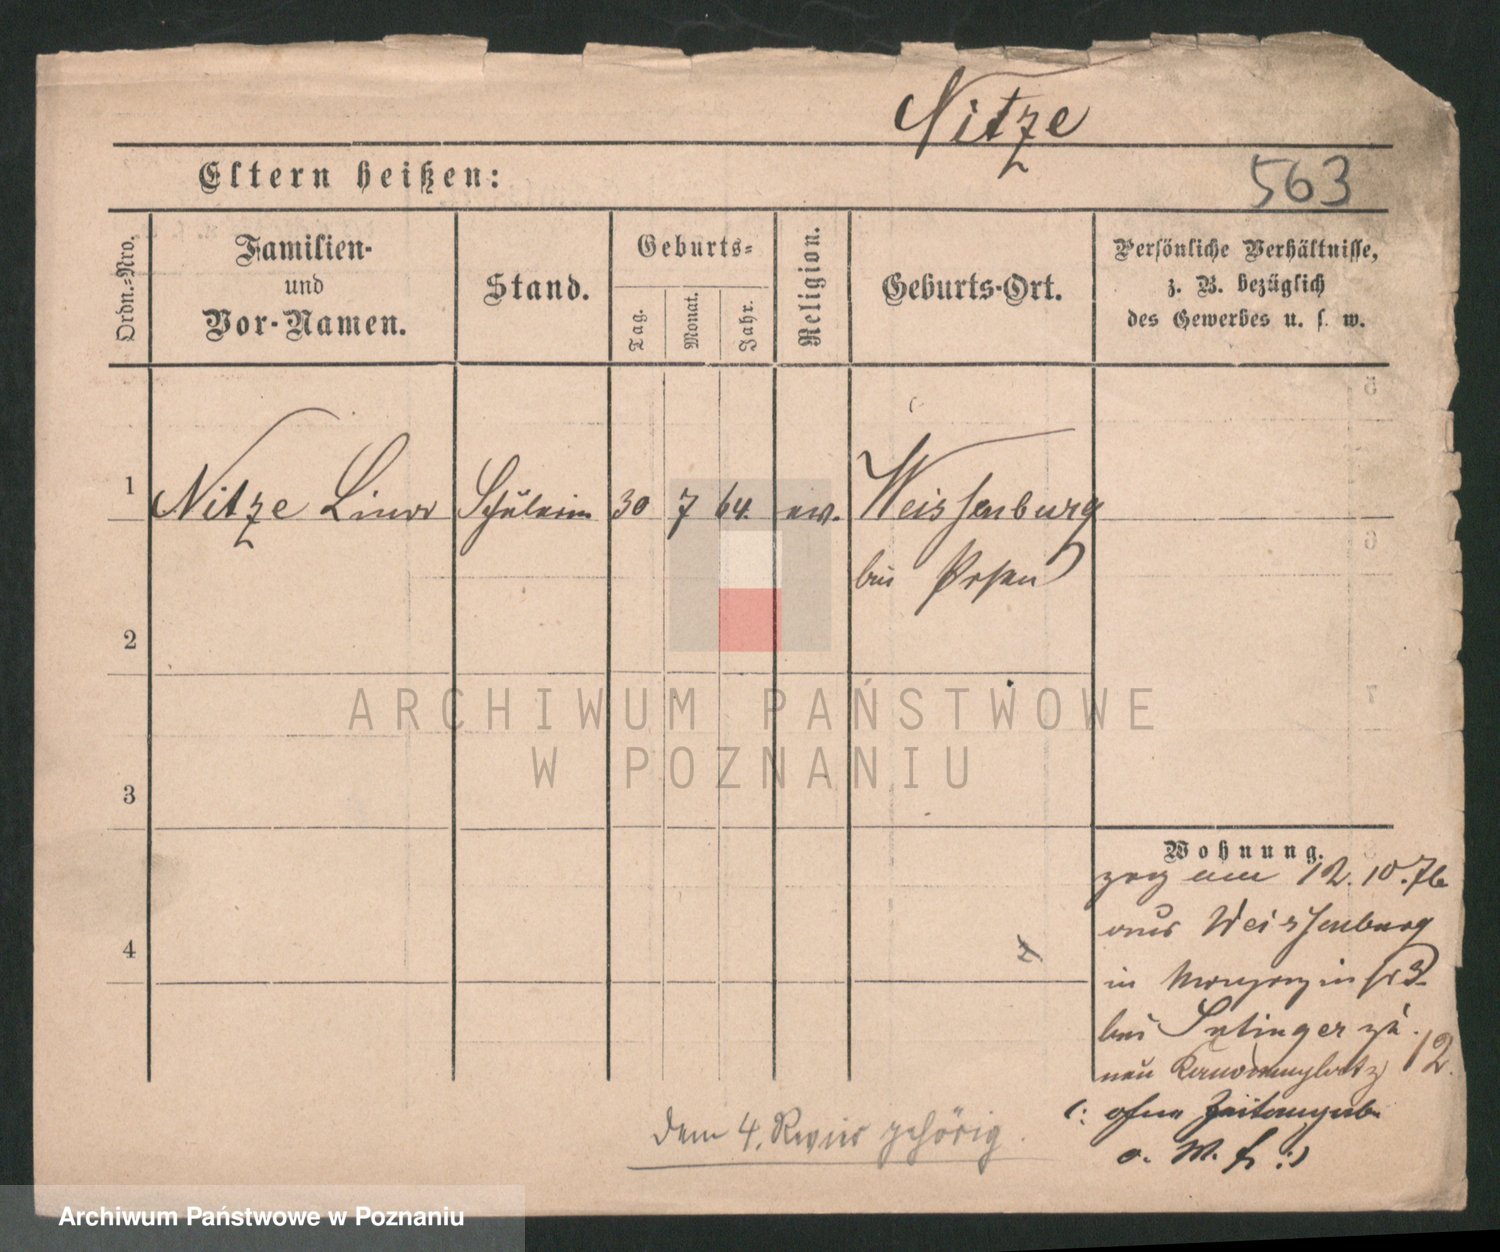 Nitze
563
Eltern heißen:
Ordn.-Nro.
Familien-
und
Vor-Namen.
Stand.
Geburts-
Tag.
Monat.
Jahr.
Religion.
Geburts-Ort.
Persönliche Verhältnisse,
z. B. bezüglich
des Gewerbes u. s. w.
1 Nitze Schülerin 30 7 64. ev. Weissenburg
bei Posen
2
3
4
ARCHIWUM PAŃSTWOWE
W POZNANIU
Wohnung.
zog am 12. 10. 76
aus Weissenburg
in 3
bei zu
neu 12.
(: ohne Zeitangabe
o. W. :)
Dem 4. Revier gehörig.
Archiwum Państwowe w Poznaniu